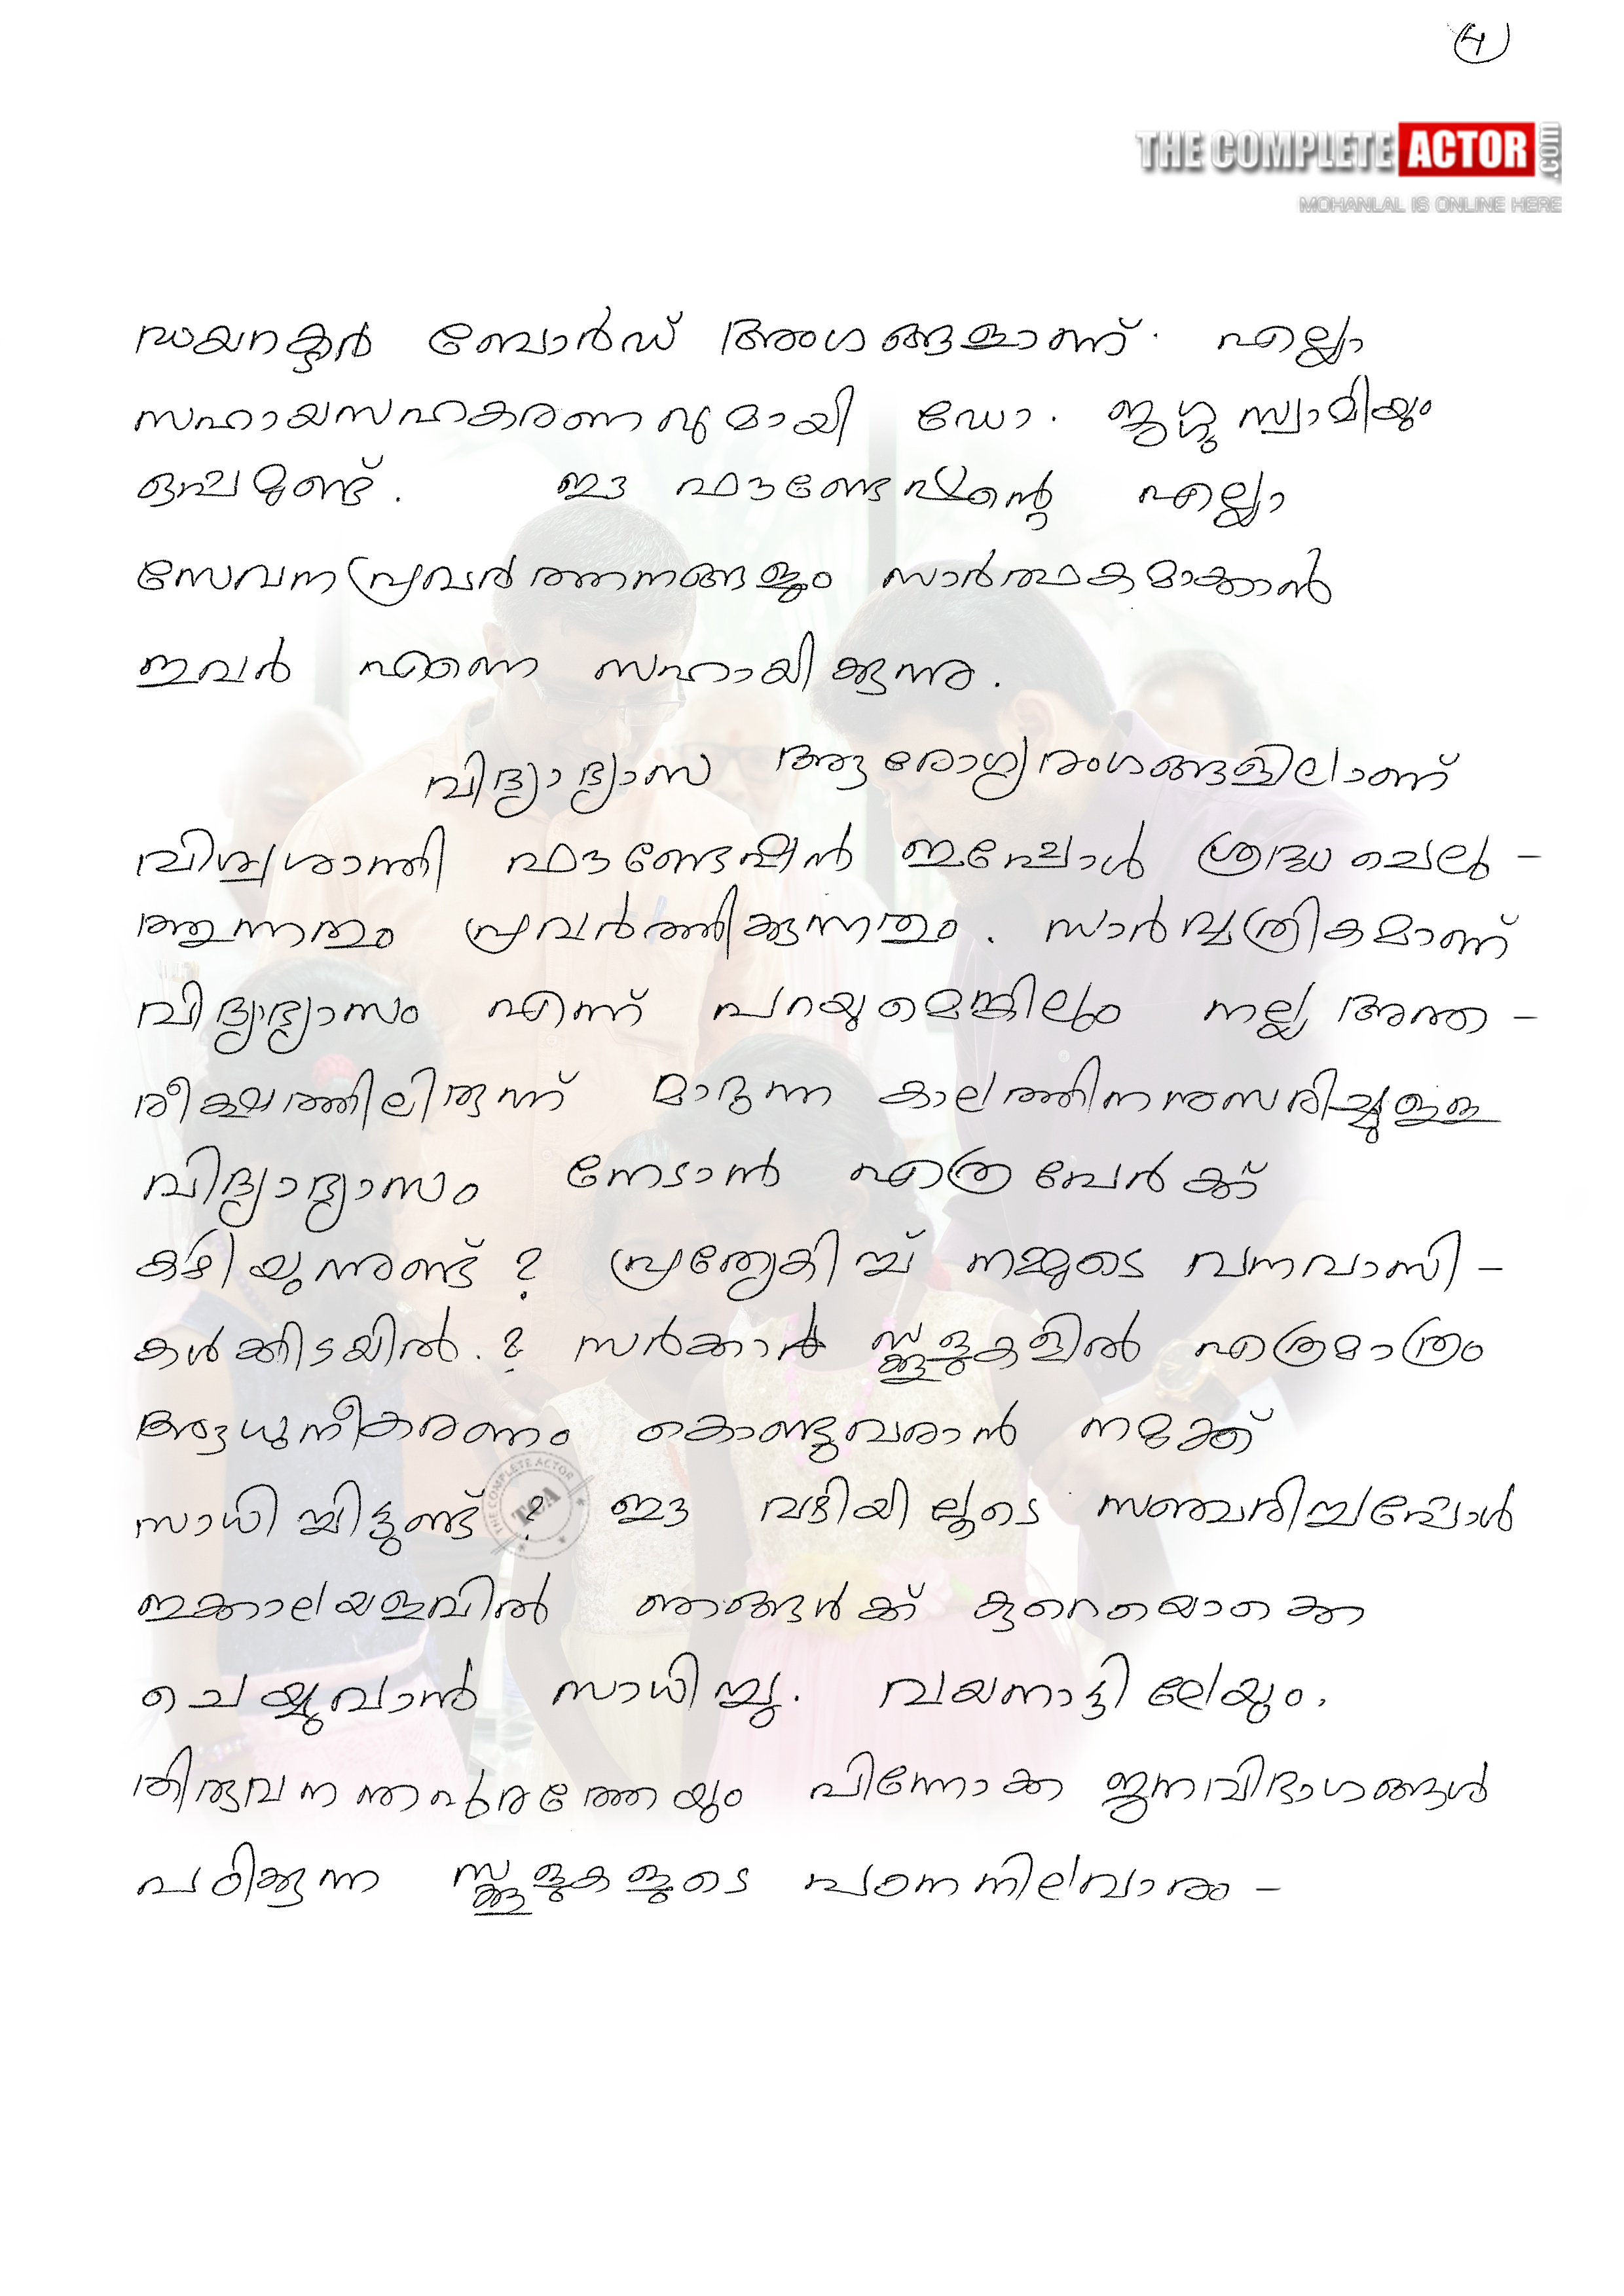 4
THE COMPLETE ACTOR .com
MOHANLAL IS ONLINE HERE
ഡയറക്ടർ ബോർഡ് അംഗങ്ങളാണ്. എല്ലാ
സഹായസഹകരണവുമായി ഡോ. ജഗ്ഗു സ്വാമിയും
ഒപ്പമുണ്ട്. ഈ ഫൗണ്ടേഷന്റെ എല്ലാ
സേവനപ്രവർത്തനങ്ങളും സാർത്ഥകമാക്കാൻ
ഇവർ എന്നെ സഹായിക്കുന്നു.
വിദ്യാഭ്യാസ ആരോഗ്യരംഗങ്ങളിലാണ്
വിശ്വശാന്തി ഫൗണ്ടേഷൻ ഇപ്പോൾ ശ്രദ്ധ ചെലു -
ത്തുന്നതും പ്രവർത്തിക്കുന്നതും. സാർവ്വത്രികമാണ്
വിദ്യാഭ്യാസം എന്ന് പറയുമെങ്കിലും നല്ല അന്ത -
രീക്ഷത്തിലിരുന്ന് മാറുന്ന കാലത്തിനനുസരിച്ചുള്ള
വിദ്യാഭ്യാസം നേടാൻ എത്ര പേർക്ക്
കഴിയുന്നുണ്ട് ? പ്രത്യേകിച്ച് നമ്മുടെ വനവാസി -
കൾക്കിടയിൽ. ? സർക്കാർ സ്ക്കൂളുകളിൽ എത്രമാത്രം
ആധുനീകരണം കൊണ്ടുവരാൻ നമുക്ക്
സാധിച്ചിട്ടുണ്ട് ? ഈ വഴിയിലൂടെ സഞ്ചരിച്ചപ്പോൾ
ഇക്കാലയളവിൽ ഞങ്ങൾക്ക് കുറെയൊക്കെ
ചെയ്യുവാൻ സാധിച്ചു. വയനാട്ടിലേയും,
തിരുവനന്തപുരത്തേയും പിന്നോക്ക ജനവിഭാഗങ്ങൾ
പഠിക്കുന്ന സ്ക്കൂളുകളുടെ പഠനനിലവാരം -
THE COMPLETE ACTOR
TCA